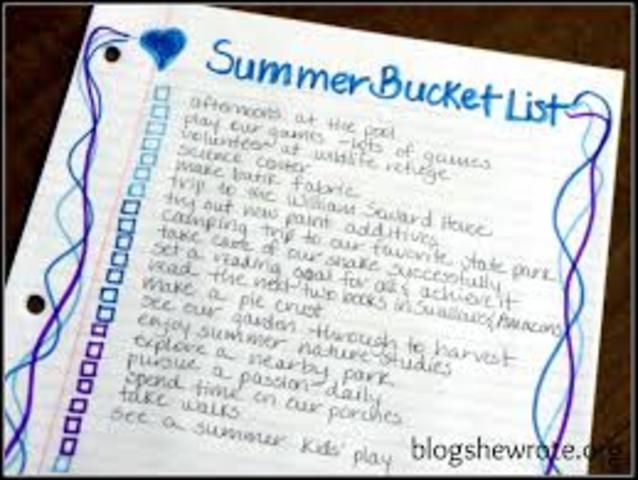 Summer Bucket List
afternoons at the pool
play our games - lots of games
volunteer at wildlife refuge
science center
make batik fabric
trip to the William Seward House
try out new paint additives
camping trip to our favorite state park
take care of our snake successfully
set a reading goal for all & achieve it
read the next two books in Swallows & Amazons
make a pie crust
see our garden through to harvest
enjoy summer nature studies
explore a nearby park
pursue a passion daily
spend time on our porches
take walks
see a summer kids' play
blogshewrote.org